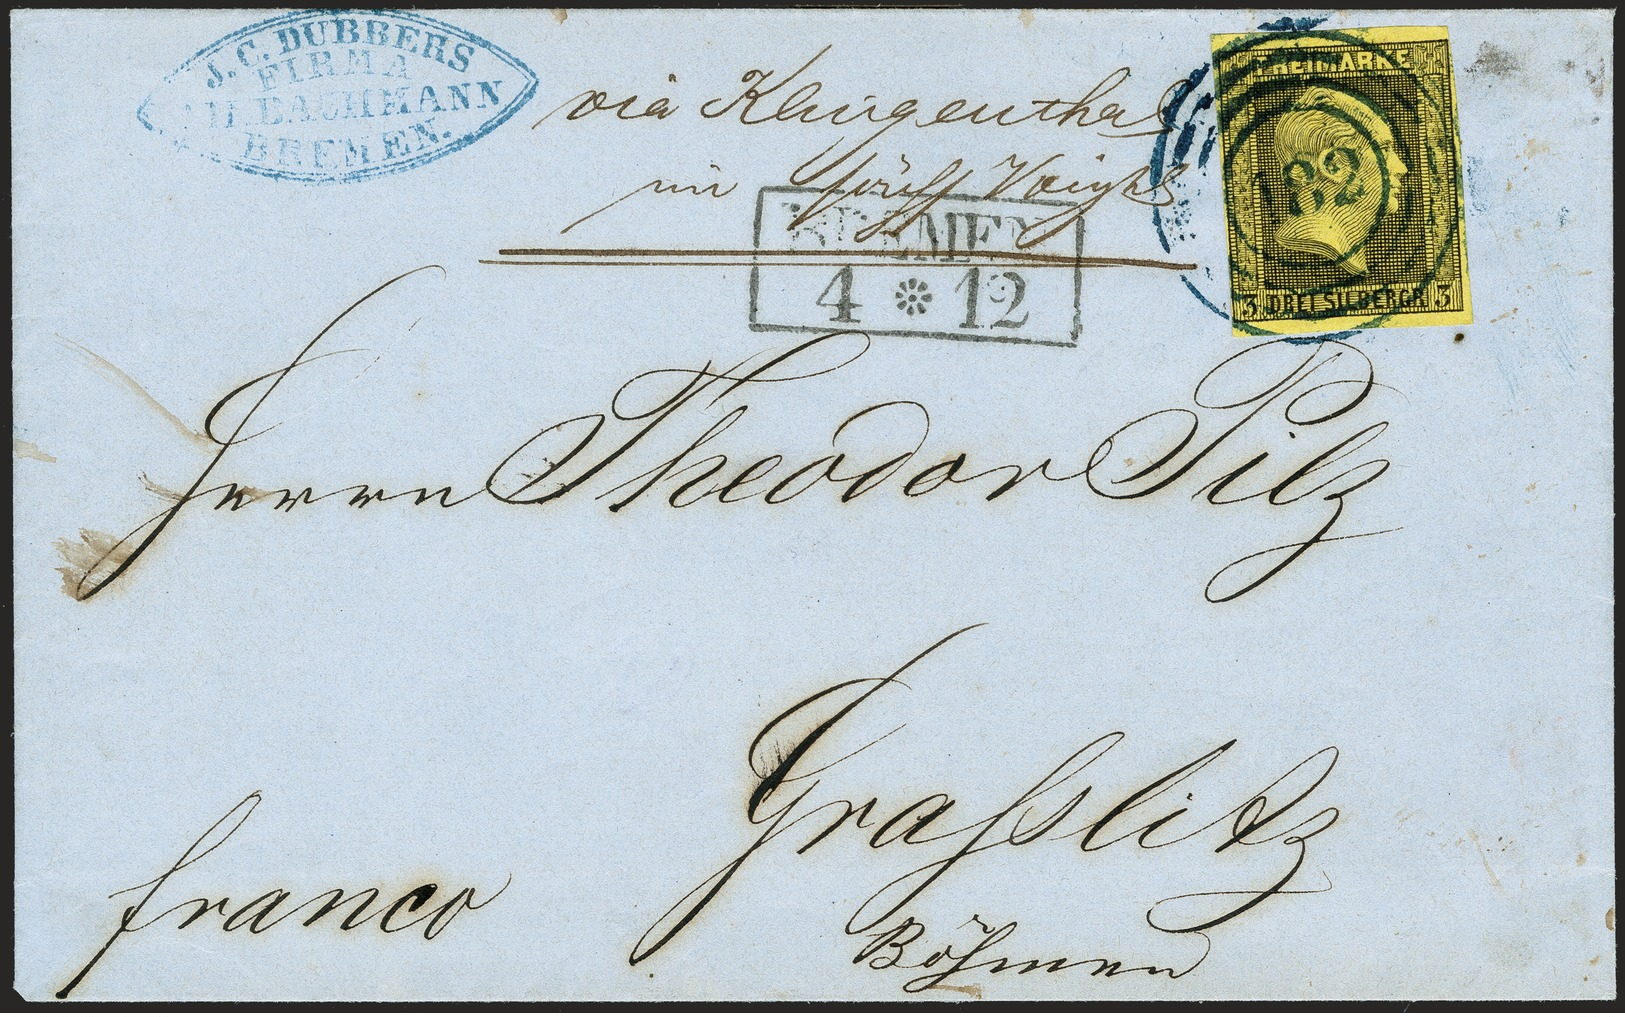 J. C. DUBBERS
FIRMA
H. BACHMANN
BREMEN.
via Klingenthal
im sächs Voigtl
FREIMARKE
182
3 DREI SILBERGR 3
BREMEN
4 * 12
Herrn Theodor Pilz
Grasslitz
Böhmen
franco